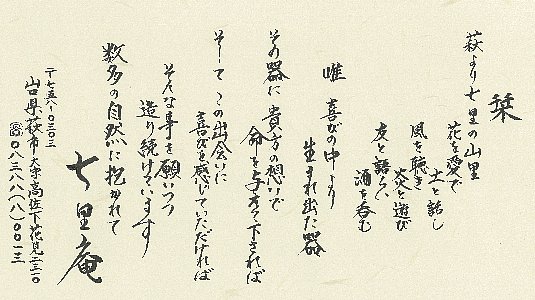 栞
萩より七里の山里
花を愛で
土と話し
風を聴き
炎と遊び
友と語らい
酒を呑む
唯 喜びの中より
生まれ出た器
その器に 貴方の想いで
命を与えて下されば
そして この出会いに
喜びを感じていただければ
そんな事を願いつつ
造り続けています
数多の自然に抱かれて
七里庵
〒七五八-〇三〇三
山口県萩市大字高佐下花見二三一〇
☎〇八三八八(八)〇〇一三